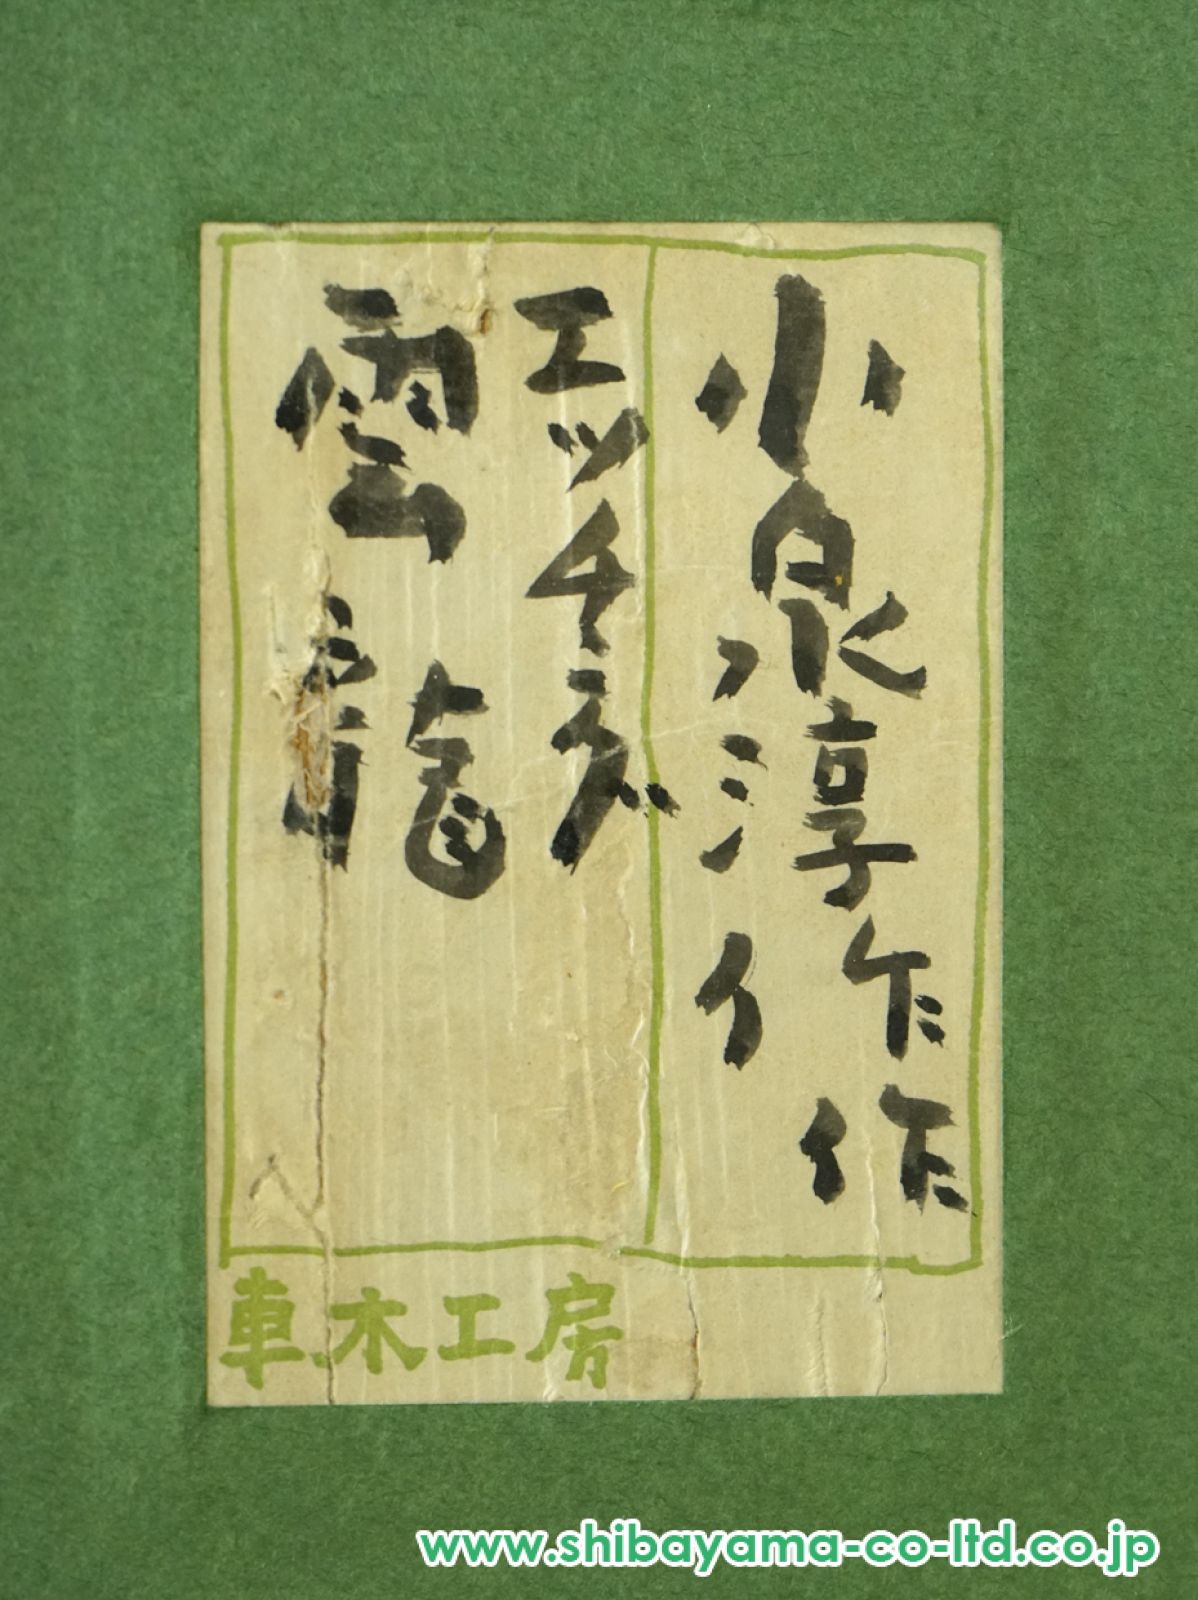 小泉淳作作
エッチング
雲龍
車木工房
www.shibayama-co-ltd.co.jp